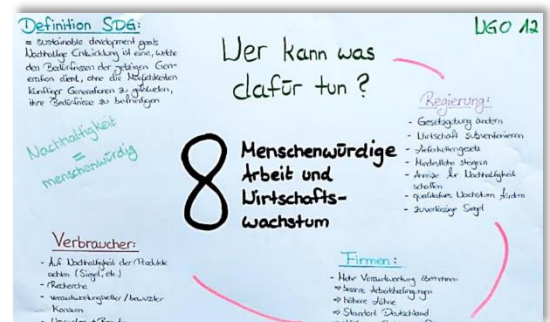 Definition SDG:
= sustainable development goals
Nachhaltige Entwicklung ist eine, welche
den Bedürfnissen der jetzigen Gen-
eration dient, ohne die Möglichkeiten
künftiger Generationen zu gefährden,
ihre Bedürfnisse zu befriedigen
UGO 12
Wer kann was
dafür tun?
Nachhaltigkeit
=
menschenwürdig
8
Menschenwürdige
Arbeit und
Wirtschafts-
wachstum
Regierung:
- Gesetzgebung ändern
- Wirtschaft subventionieren
- Lieferkettengesetz
- Mindestlohn steigern
- Anreize für Nachhaltigkeit
schaffen
- qualitatives Wachstum fördern
- zuverlässige Siegel
Verbraucher:
- Auf Nachhaltigkeit der Produkte
achten (Siegel, etc.)
- Recherche
- verantwortungsvoller/bewusster
Konsum
Firmen:
- Mehr Verantwortung übernehmen
⇒ bessere Arbeitsbedingungen
⇒ höhere Löhne
⇒ Standort Deutschland